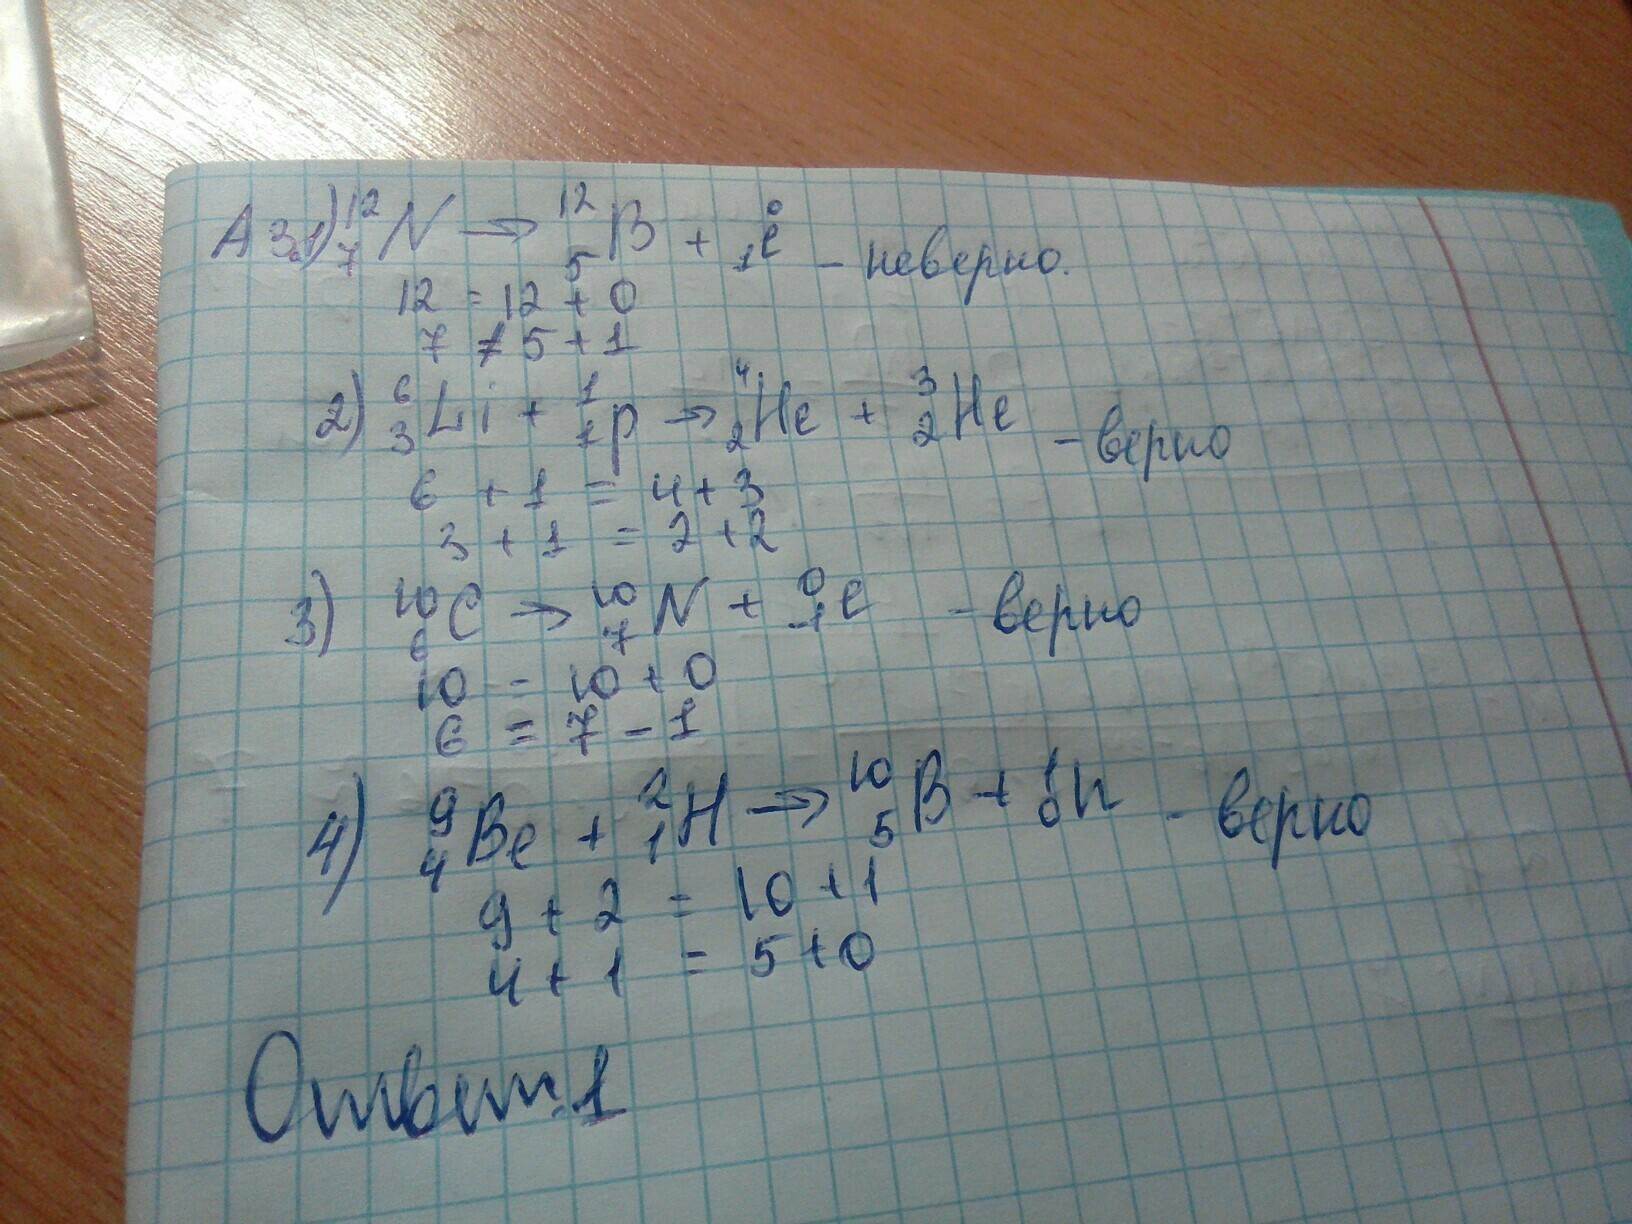 А 3. 1) ¹²₇N → ¹²₅B + ⁰₁e - неверно.
12 = 12 + 0
7 ≠ 5 + 1
2) ⁶₃Li + ¹₁p → ⁴₂He + ³₂He - верно
6 + 1 = 4 + 3
3 + 1 = 2 + 2
3) ¹⁰₆C → ¹⁰₇N + ⁰₋₁e - верно
10 = 10 + 0
6 = 7 - 1
4) ⁹₄Be + ²₁H → ¹⁰₅B + ¹₀n - верно
9 + 2 = 10 + 1
4 + 1 = 5 + 0
Ответ: 1